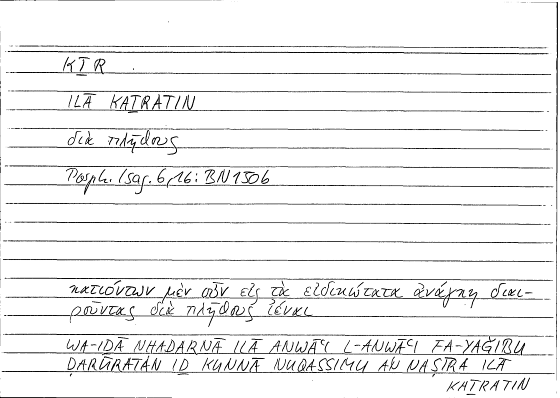 KṮR
ILĀ KAṮRATIN
διὰ πλήθους
Porph. Isag. 6,16: BN150b
κατιόντων μὲν οὖν εἰς τὰ εἰδικώτατα ἀνάγκη διαι-
ροῦντας διὰ πλήθους ἰέναι
WA-IḎĀ NḤADARNĀ ILĀ ANWĀʿI L-ANWĀʿI FA-YAǦIBU
ḌARŪRATAN IḎ KUNNĀ NUQASSIMU AN NAṢĪRA ILĀ
KAṮRATIN